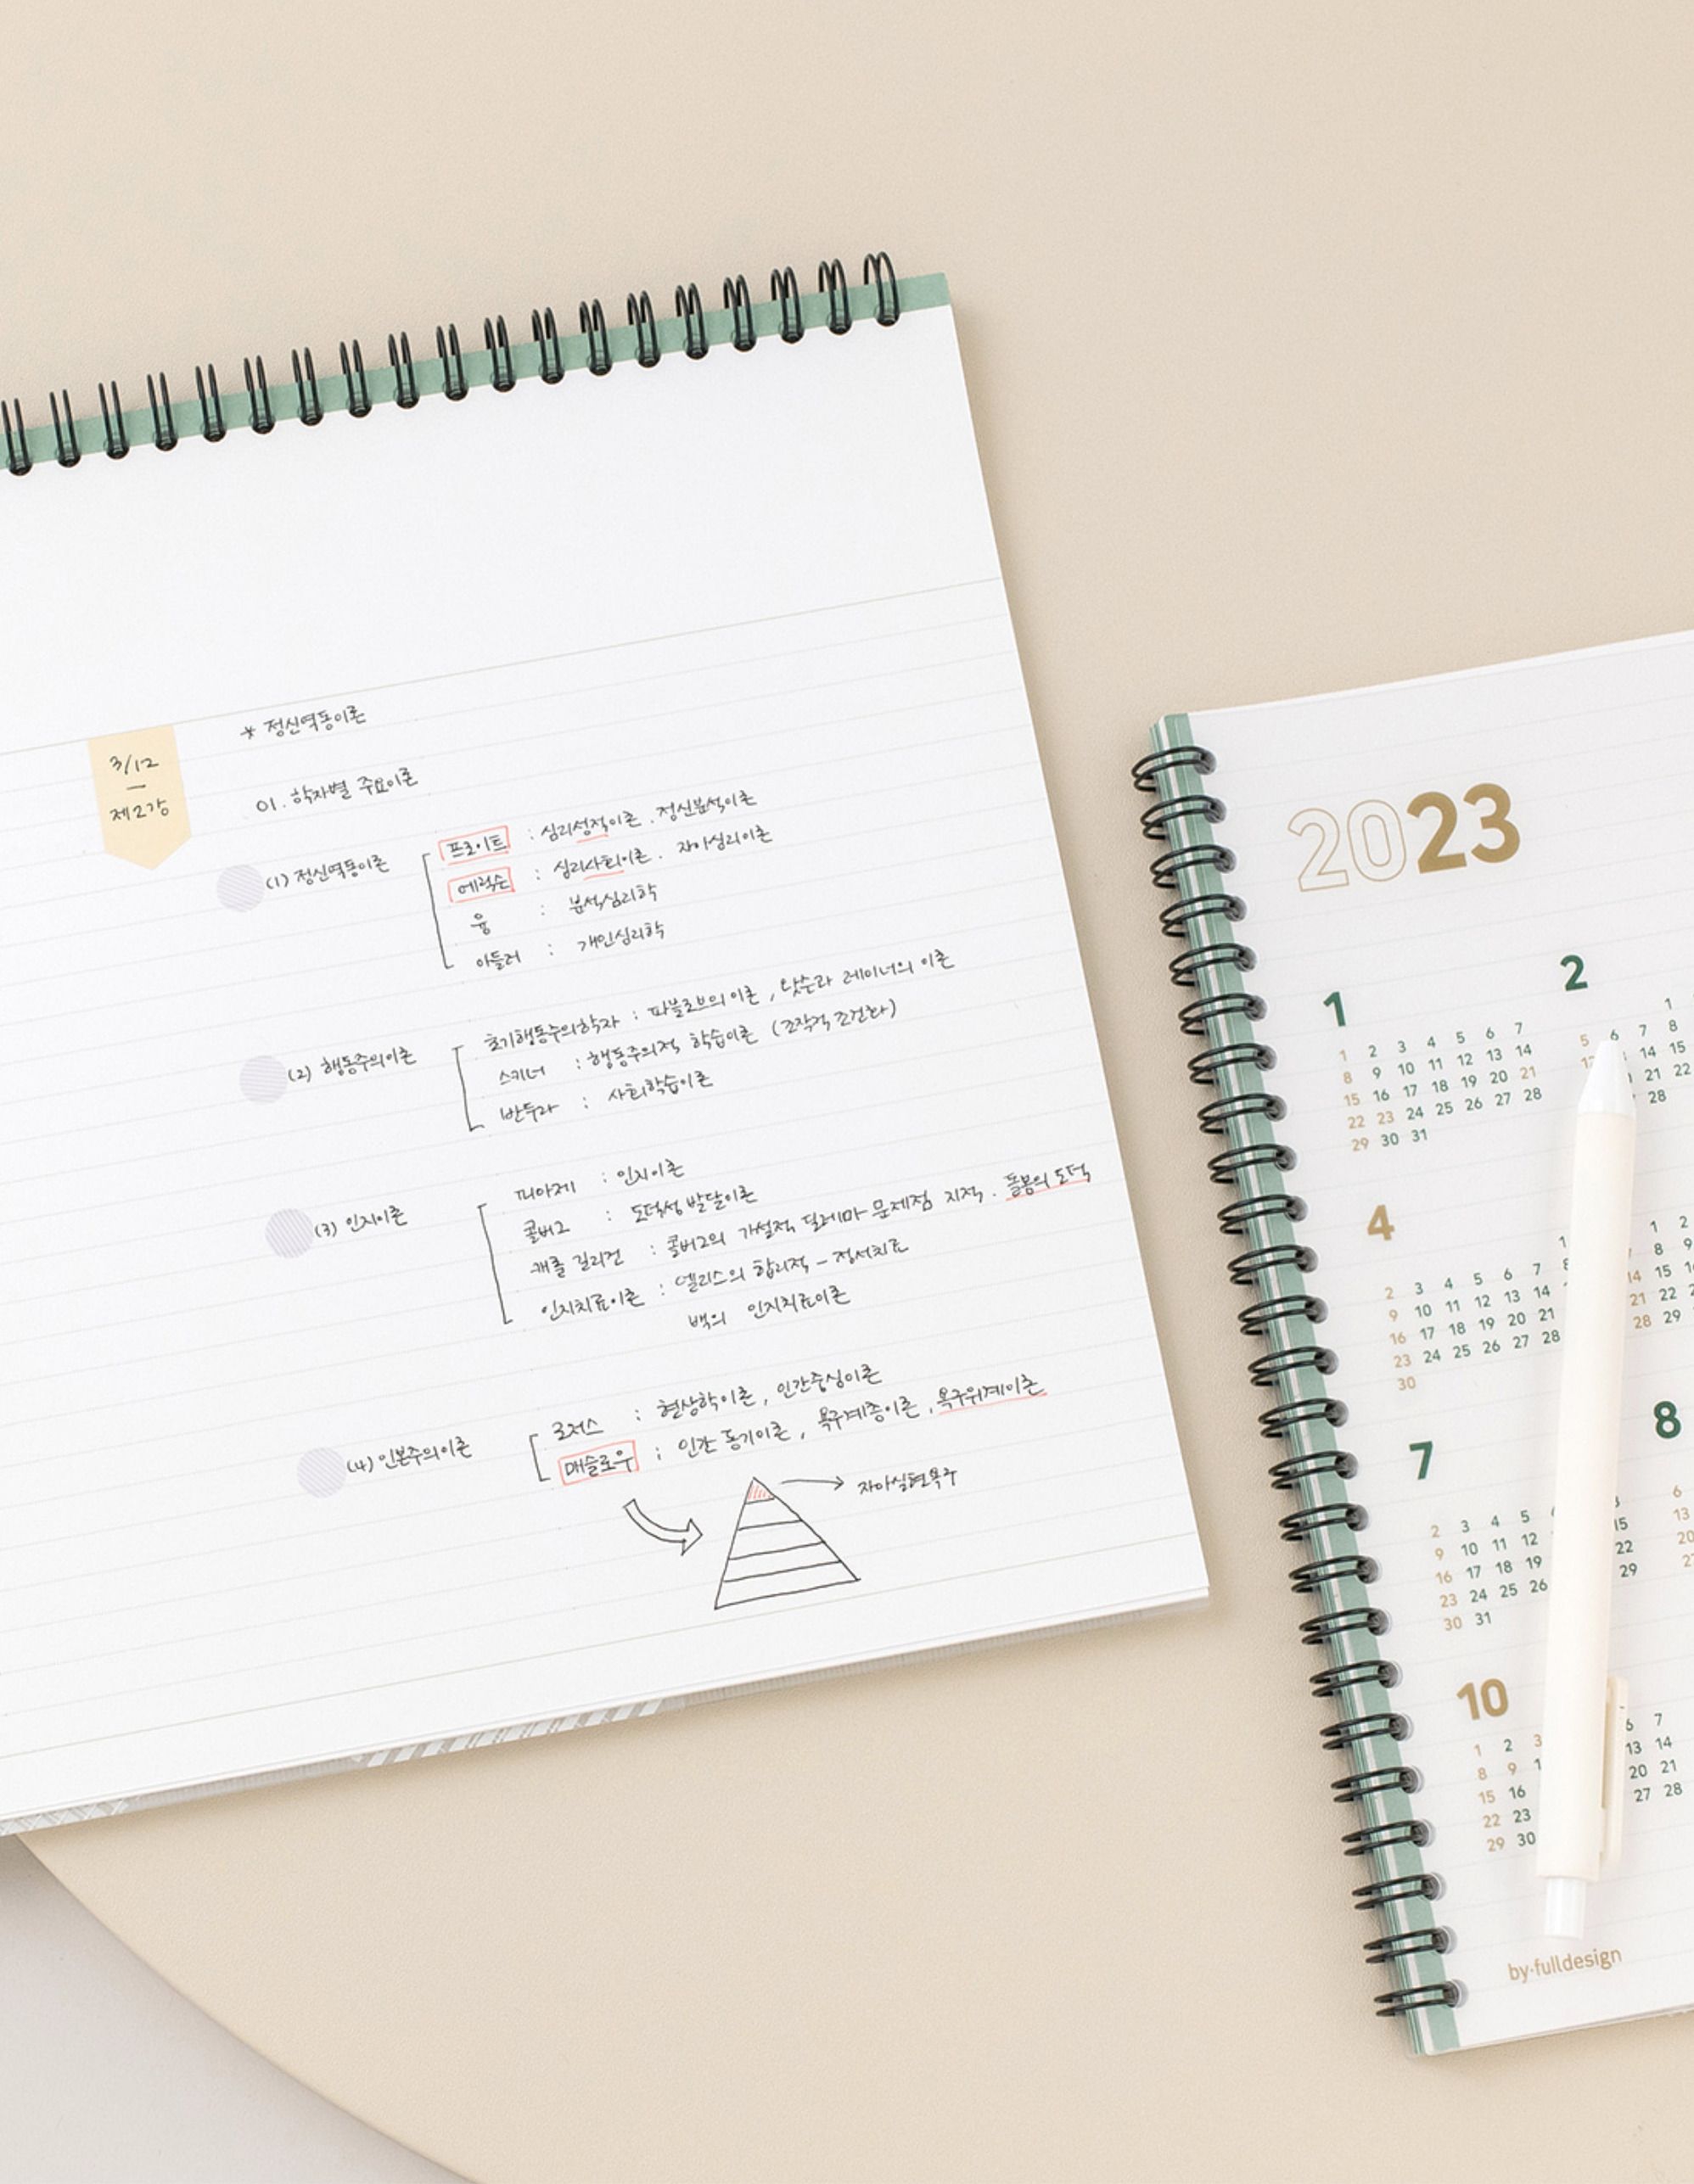 * 정신역동이론
3/12
제2강
01. 학자별 주요이론
(1) 정신역동이론
프로이트 : 심리성적이론. 정신분석이론
에릭슨 : 심리사회이론. 자아심리이론
융 : 분석심리학
아들러 : 개인심리학
(2) 행동주의이론
초기행동주의학자 : 파블로브의 이론, 왓슨과 레이너의 이론
스키너 : 행동주의적 학습이론 (조작적 조건화)
반두라 : 사회학습이론
(3) 인지이론
피아제 : 인지이론
콜버그 : 도덕성 발달이론
캐롤 길리건 : 콜버그의 가설적 딜레마 문제점 지적. 돌봄의 도덕
인지치료이론 : 엘리스의 합리적 - 정서치료
벡의 인지치료이론
(4) 인본주의이론
로저스 : 현상학이론, 인간중심이론
매슬로우 : 인간 동기이론, 욕구계층이론, 욕구위계이론
자아실현욕구
2023
1
1 2 3 4 5 6 7
8 9 10 11 12 13 14
15 16 17 18 19 20 21
22 23 24 25 26 27 28
29 30 31
2
1
5 6 7 8
14 15
21 22
28
4
1
2 3 4 5 6 7
9 10 11 12 13 14
16 17 18 19 20 21
23 24 25 26 27 28
30
1 2
8 9
14 15
21 22
28 29
7
2 3 4 5
9 10 11 12 15
16 17 18 19 22
23 24 25 26 29
30 31
8
6
13
20
10
1 2 3 6 7
8 9 13 14
15 16 20 21
22 23 27 28
29 30
by·fulldesign